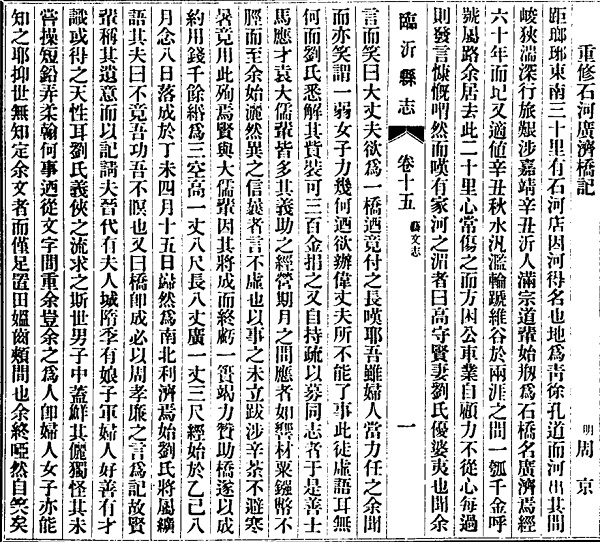 重修石河廣濟橋記
明 周京
距瑯琊東南三十里有石河店因河得名也地爲靑徐孔道而河出其間
峻狹湍深行旅艱涉嘉靖辛丑沂人滿宗道輩始剏爲石橋名廣濟焉經
六十年而圮又適値辛丑秋水汎濫輪蹏維谷於兩涯之間一瓠千金呼
號屬路余居去此二十里心常傷之而方困公車業自顧力不從心每過
則發言慷慨喟然而嘆有家河之湄者曰高守賢妻劉氏優婆夷也聞余
臨沂縣志 卷十五 藝文志 一
言而笑曰大丈夫欲爲一橋迺竟付之長嘆耶吾雖婦人當力任之余聞
而亦笑謂一弱女子力幾何迺欲辦偉丈夫所不能了事此徒虛語耳無
何而劉氏悉解其貲裝可三百金捐之又自持疏以募同志者于是善士
馬應才袁大儒輩皆多其義助之經營期月之間應者如響材粟鏹幣不
脛而至余始灑然異之信曩者言不虛也以事之未立跋涉辛荼不避寒
暑竟用此殉焉賢與大儒輩因其將成而終虧一簣竭力贊助橋遂以成
約用錢千餘緡爲三空高一丈八尺長八丈廣一丈三尺經始於乙巳八
月念八日落成於丁未四月十五日巋然爲南北利濟焉始劉氏將屬纊
語其夫曰不竟吾功吾不瞑也又曰橋卽成必以周孝廉之言爲記故賢
輩稱其遺意而以記請夫晉代有夫人城隋李有娘子軍婦人好善有才
識或得之天性耳劉氏義俠之流求之斯世男子中蓋鮮其儷獨怪其未
嘗操短鉛弄柔翰何事迺從文字間重余豈余之爲人卽婦人女子亦能
知之耶抑世無知定余文者而僅足置田媼齒頰間也余終啞然自笑矣